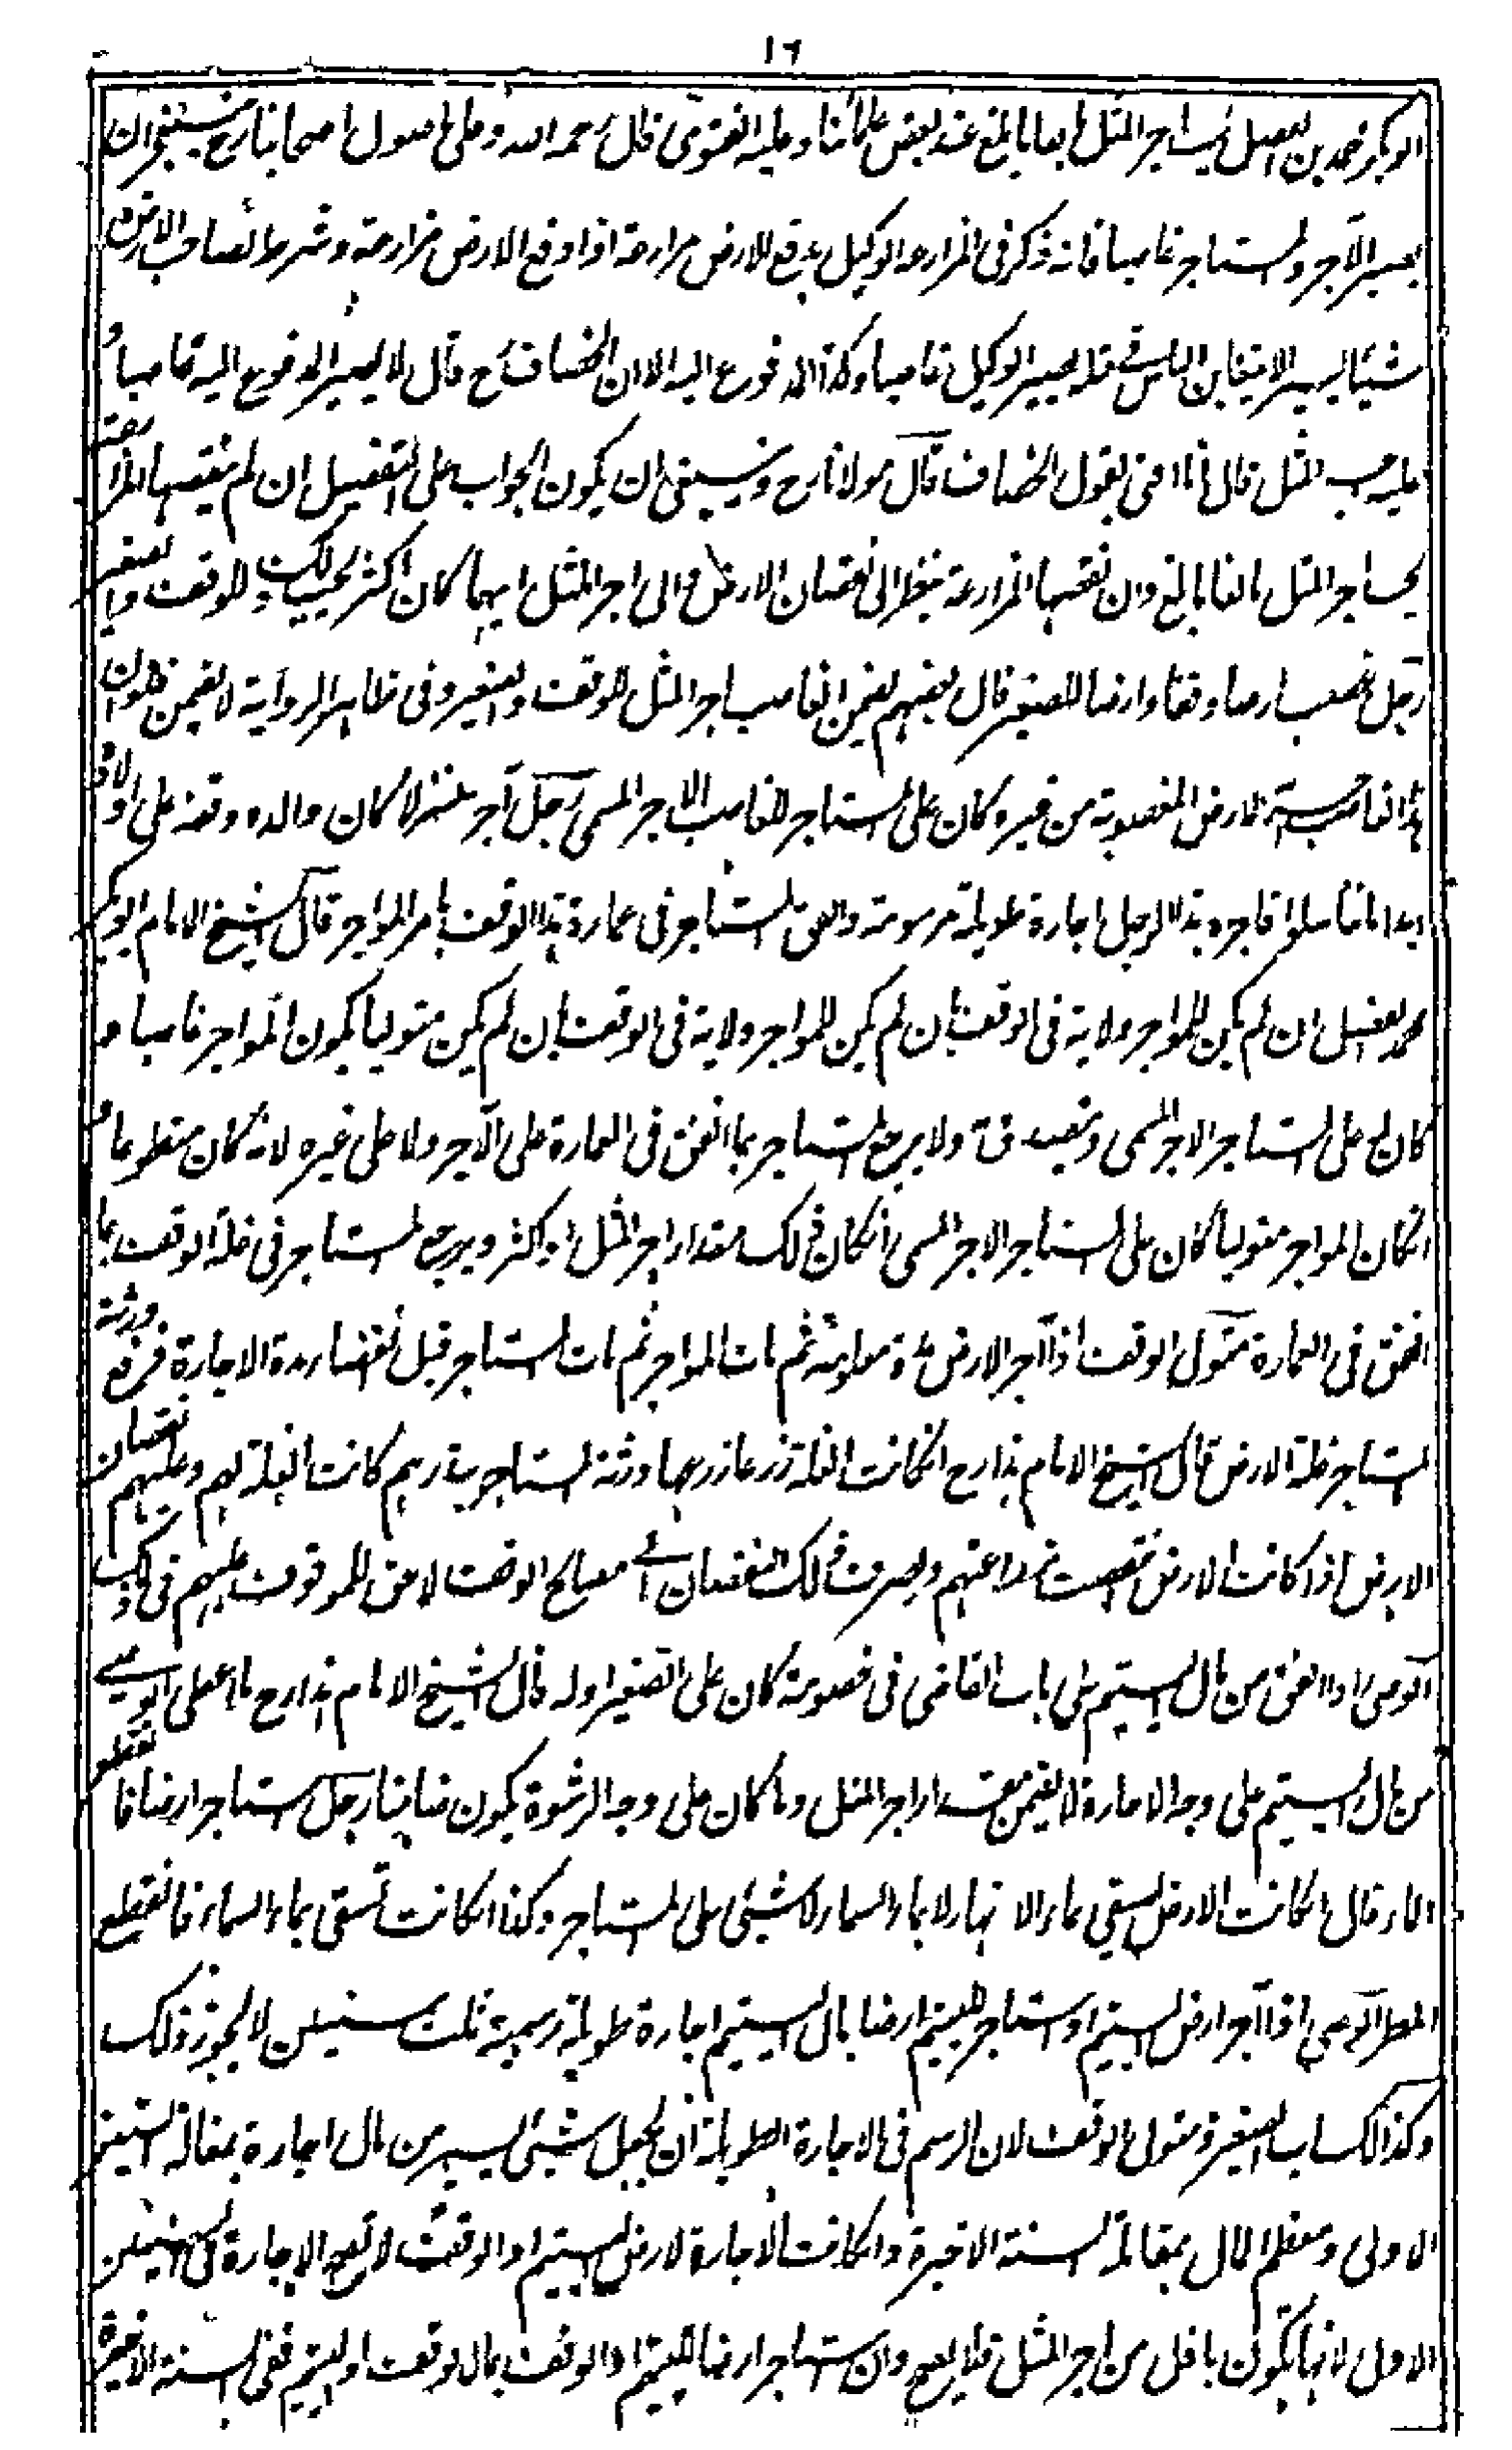 ١٦
ابو بكر محمد بن الفضل يجب اجر المثل بالغا ما بلغ عند بعض علمائنا وعليه الفتوى قال رحمه الله وعلى اصول اصحابنا رح ينبغي ان
يصير الآجر والمستاجر غاصبا فانه ذكر في المزارعة الوكيل بدفع الارض مزارعة اذا دفع الارض مزارعة وشرط لصاحب الارض
شيئا يسيرا لا يتغابن الناس في مثله يصير الوكيل غاصبا وكذا المدفوع اليه الا ان الخصاف رح قال لا يصير المدفوع اليه غاصبا و
عليه اجر المثل قال انا افتي بقول الخصاف قال مولانا رح وينبغي ان يكون الجواب على التفصيل ان لم ينقصها المزارعة
يجب اجر المثل بالغا ما بلغ وان نقصها المزارعة ينظر الى نقصان الارض والى اجر المثل ايهما كان اكثر يجب ذلك للوقف والصغير
رجل غصب ارضا وقفا او ارضا للصغير قال بعضهم يضمن الغاصب اجر المثل للوقف والصغير وفي ظاهر الرواية لا يضمن فلو ان
هذا الغاصب آجر الارض المغصوبة من غيره كان على المستاجر للغاصب الاجر المسمى رجل آجر منزلا كان والده وقفه على اولاده
ابدا ما تناسلوا فاجره هذا الرجل اجارة طويلة مرسومة وانفق المستاجر في عمارة هذا الوقف بامر المواجر قال الشيخ الامام ابو بكر
محمد بن الفضل ان لم يكن للمواجر ولاية في الوقف بان لم يكن للمواجر ولاية في الوقف بان لم يكن متوليا يكون المواجر غاصبا و
كان له على المستاجر الاجر المسمى ويتصدق به ولا يرجع المستاجر بما انفق في العمارة على الآجر ولا على غيره لانه كان متطوعا و
ان كان المواجر متوليا كان على المستاجر الاجر المسمى ان كان ذلك مقدار اجر المثل او اكثر ويرجع المستاجر في غلة الوقف بما
انفق في العمارة متولى الوقف اذا آجر الارض مدة معلومة ثم مات المواجر ثم مات المستاجر قبل انقضاء مدة الاجارة فزرع ورثة
المستاجر غلة الارض قال الشيخ الامام هذا رح ان كانت الغلة زرعا زرعها ورثة المستاجر ببذرهم كانت الغلة لهم وعليهم نقصان
الارض اذا كانت الارض نقصت بزراعتهم ويصرف ذلك النقصان الى مصالح الوقف لا حق للموقوف عليهم في ذلك
الوصي اذا انفق من مال اليتيم على باب القاضي في خصومة كان على الصغير او له قال الشيخ الامام هذا رح ما اعطى الوصي
من مال اليتيم على وجه الاجارة لا يضمن مقدار اجر المثل وما كان على وجه الرشوة يكون ضامنا رجل استاجر ارضا فانقطع
الماء قال ان كانت الارض تسقي بماء الانهار لا بماء السماء لا شيئ على المستاجر وكذا ان كانت تسقي بماء السماء فانقطع
المطر الوصي اذا آجر ارض اليتيم او استاجر لليتيم ارضا بمال اليتيم اجارة طويلة رسمية ثلث سنين لا يجوز ذلك
وكذا لك اب الصغير ومتولى الوقف لان الرسم في الاجارة الطويلة ان يجعل شيئ يسير من مال اجارة بمقابلة السنين
الاولى ومعظم المال بمقابلة السنة الاخيرة وان كانت الاجارة لارض اليتيم او الوقف لا تصح الاجارة في السنين
الاول لانها تكون باقل من اجر المثل فلا يصح وان استاجر ارضا لليتيم او الوقف بمال الوقف او اليتيم ففي السنة الاخيرة